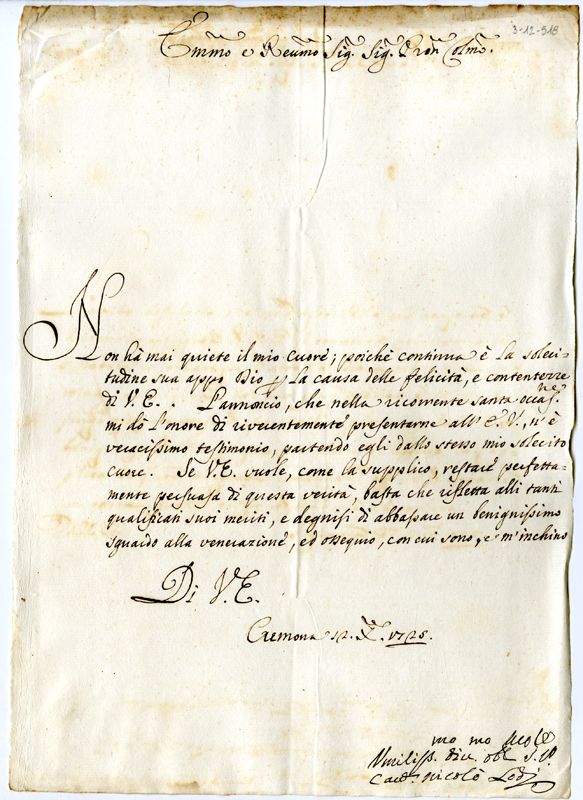 3-12-918
Emmo e Reumo Sig. Sig. Pron Colmo.
Non hà mai quiete il mio cuore; poiche continua è la soleci-
tudine sua appo Dio p la causa delle felicità, e contentezze
di V. E.. L'annoncio, che nella ricorrente santa occasne.
mi dò l'onore di riverentemente presentarne all' E. V., n'è
veracissimo testimonio, partendo egli dallo stesso mio solecito
cuore. Se V. E. vuole, come la supplico, restare perfetta-
mente persuasa di questa verità, basta che rifletta alli tanti
qualificati suoi meriti, e degnisi di abbassare un benignissimo
sguardo alla venerazione, ed ossequio, con cui sono, e m'inchino
Di V. E.
Cremona 12. Xre. 1725.
mo mo
Umiliss. diu. obl. S.
Card. Nicolò Lodi